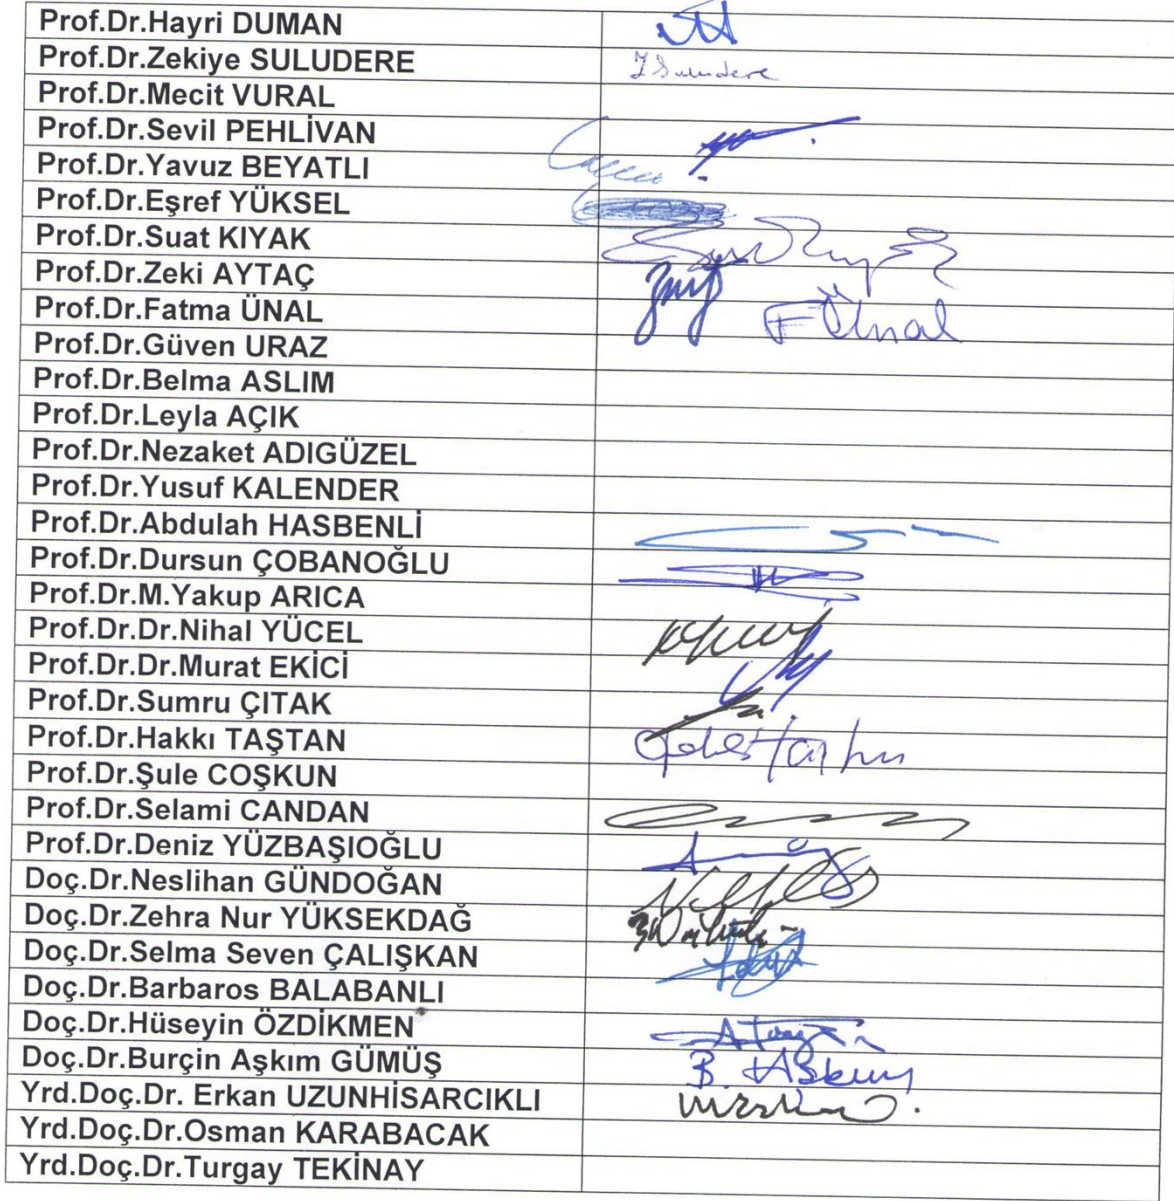 Prof.Dr.Hayri DUMAN
Prof.Dr.Zekiye SULUDERE Z Suludere
Prof.Dr.Mecit VURAL
Prof.Dr.Sevil PEHLİVAN
Prof.Dr.Yavuz BEYATLI
Prof.Dr.Eşref YÜKSEL
Prof.Dr.Suat KIYAK
Prof.Dr.Zeki AYTAÇ
Prof.Dr.Fatma ÜNAL F Ünal
Prof.Dr.Güven URAZ
Prof.Dr.Belma ASLIM
Prof.Dr.Leyla AÇIK
Prof.Dr.Nezaket ADIGÜZEL
Prof.Dr.Yusuf KALENDER
Prof.Dr.Abdulah HASBENLİ
Prof.Dr.Dursun ÇOBANOĞLU
Prof.Dr.M.Yakup ARICA
Prof.Dr.Dr.Nihal YÜCEL
Prof.Dr.Dr.Murat EKİCİ
Prof.Dr.Sumru ÇITAK
Prof.Dr.Hakkı TAŞTAN
Prof.Dr.Şule COŞKUN
Prof.Dr.Selami CANDAN
Prof.Dr.Deniz YÜZBAŞIOĞLU
Doç.Dr.Neslihan GÜNDOĞAN
Doç.Dr.Zehra Nur YÜKSEKDAĞ
Doç.Dr.Selma Seven ÇALIŞKAN
Doç.Dr.Barbaros BALABANLI
Doç.Dr.Hüseyin ÖZDİKMEN
Doç.Dr.Burçin Aşkım GÜMÜŞ
Yrd.Doç.Dr. Erkan UZUNHİSARCIKLI
Yrd.Doç.Dr.Osman KARABACAK
Yrd.Doç.Dr.Turgay TEKİNAY